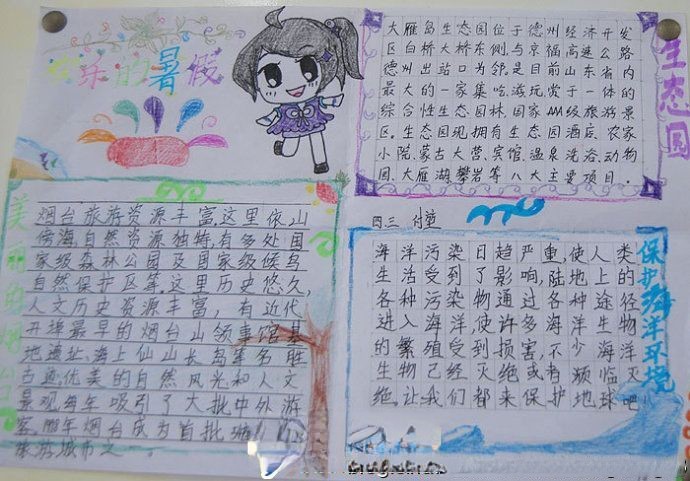 快乐的暑假
大雁岛生态园位于德州经济开发
区白桥大桥东侧,与京福高速公路
德州出站口为邻,是目前山东省内
最大的一家集吃,游,玩,赏于一体的
综合性生态园林,国家AAA级旅游景
区。生态园现拥有生态园酒店、农家
小院、蒙古大营、宾馆、温泉洗浴、动物
园、大雁湖、攀岩等八大主要项目。
生态园
美丽的烟台
烟台旅游资源丰富,这里依山
傍海,自然资源独特,有多处国
家级森林公园及国家级候鸟
自然保护区等.这里历史悠久,
人文历史资源丰富,有近代
开埠最早的烟台山领事馆基
地遗址、海上仙山长岛等名胜
古迹,优美的自然风光和人文
景观,每年吸引了大批中外游
客.那年烟台成为首批
旅游城市之一。
四三
海洋污染日趋严重,使人类
生活受到了影响,陆地上的
各种污染物通过各种途径
进入海洋,使许多海洋生物
的繁殖受到损害,不少海洋
生物已经灭绝或者濒临灭
绝,让我们都来保护地球吧!
保护海洋环境